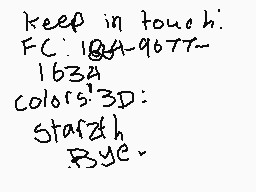 keep in touch:
FC: 1834-9677-
1634
colors! 3D:
starzth
Bye.